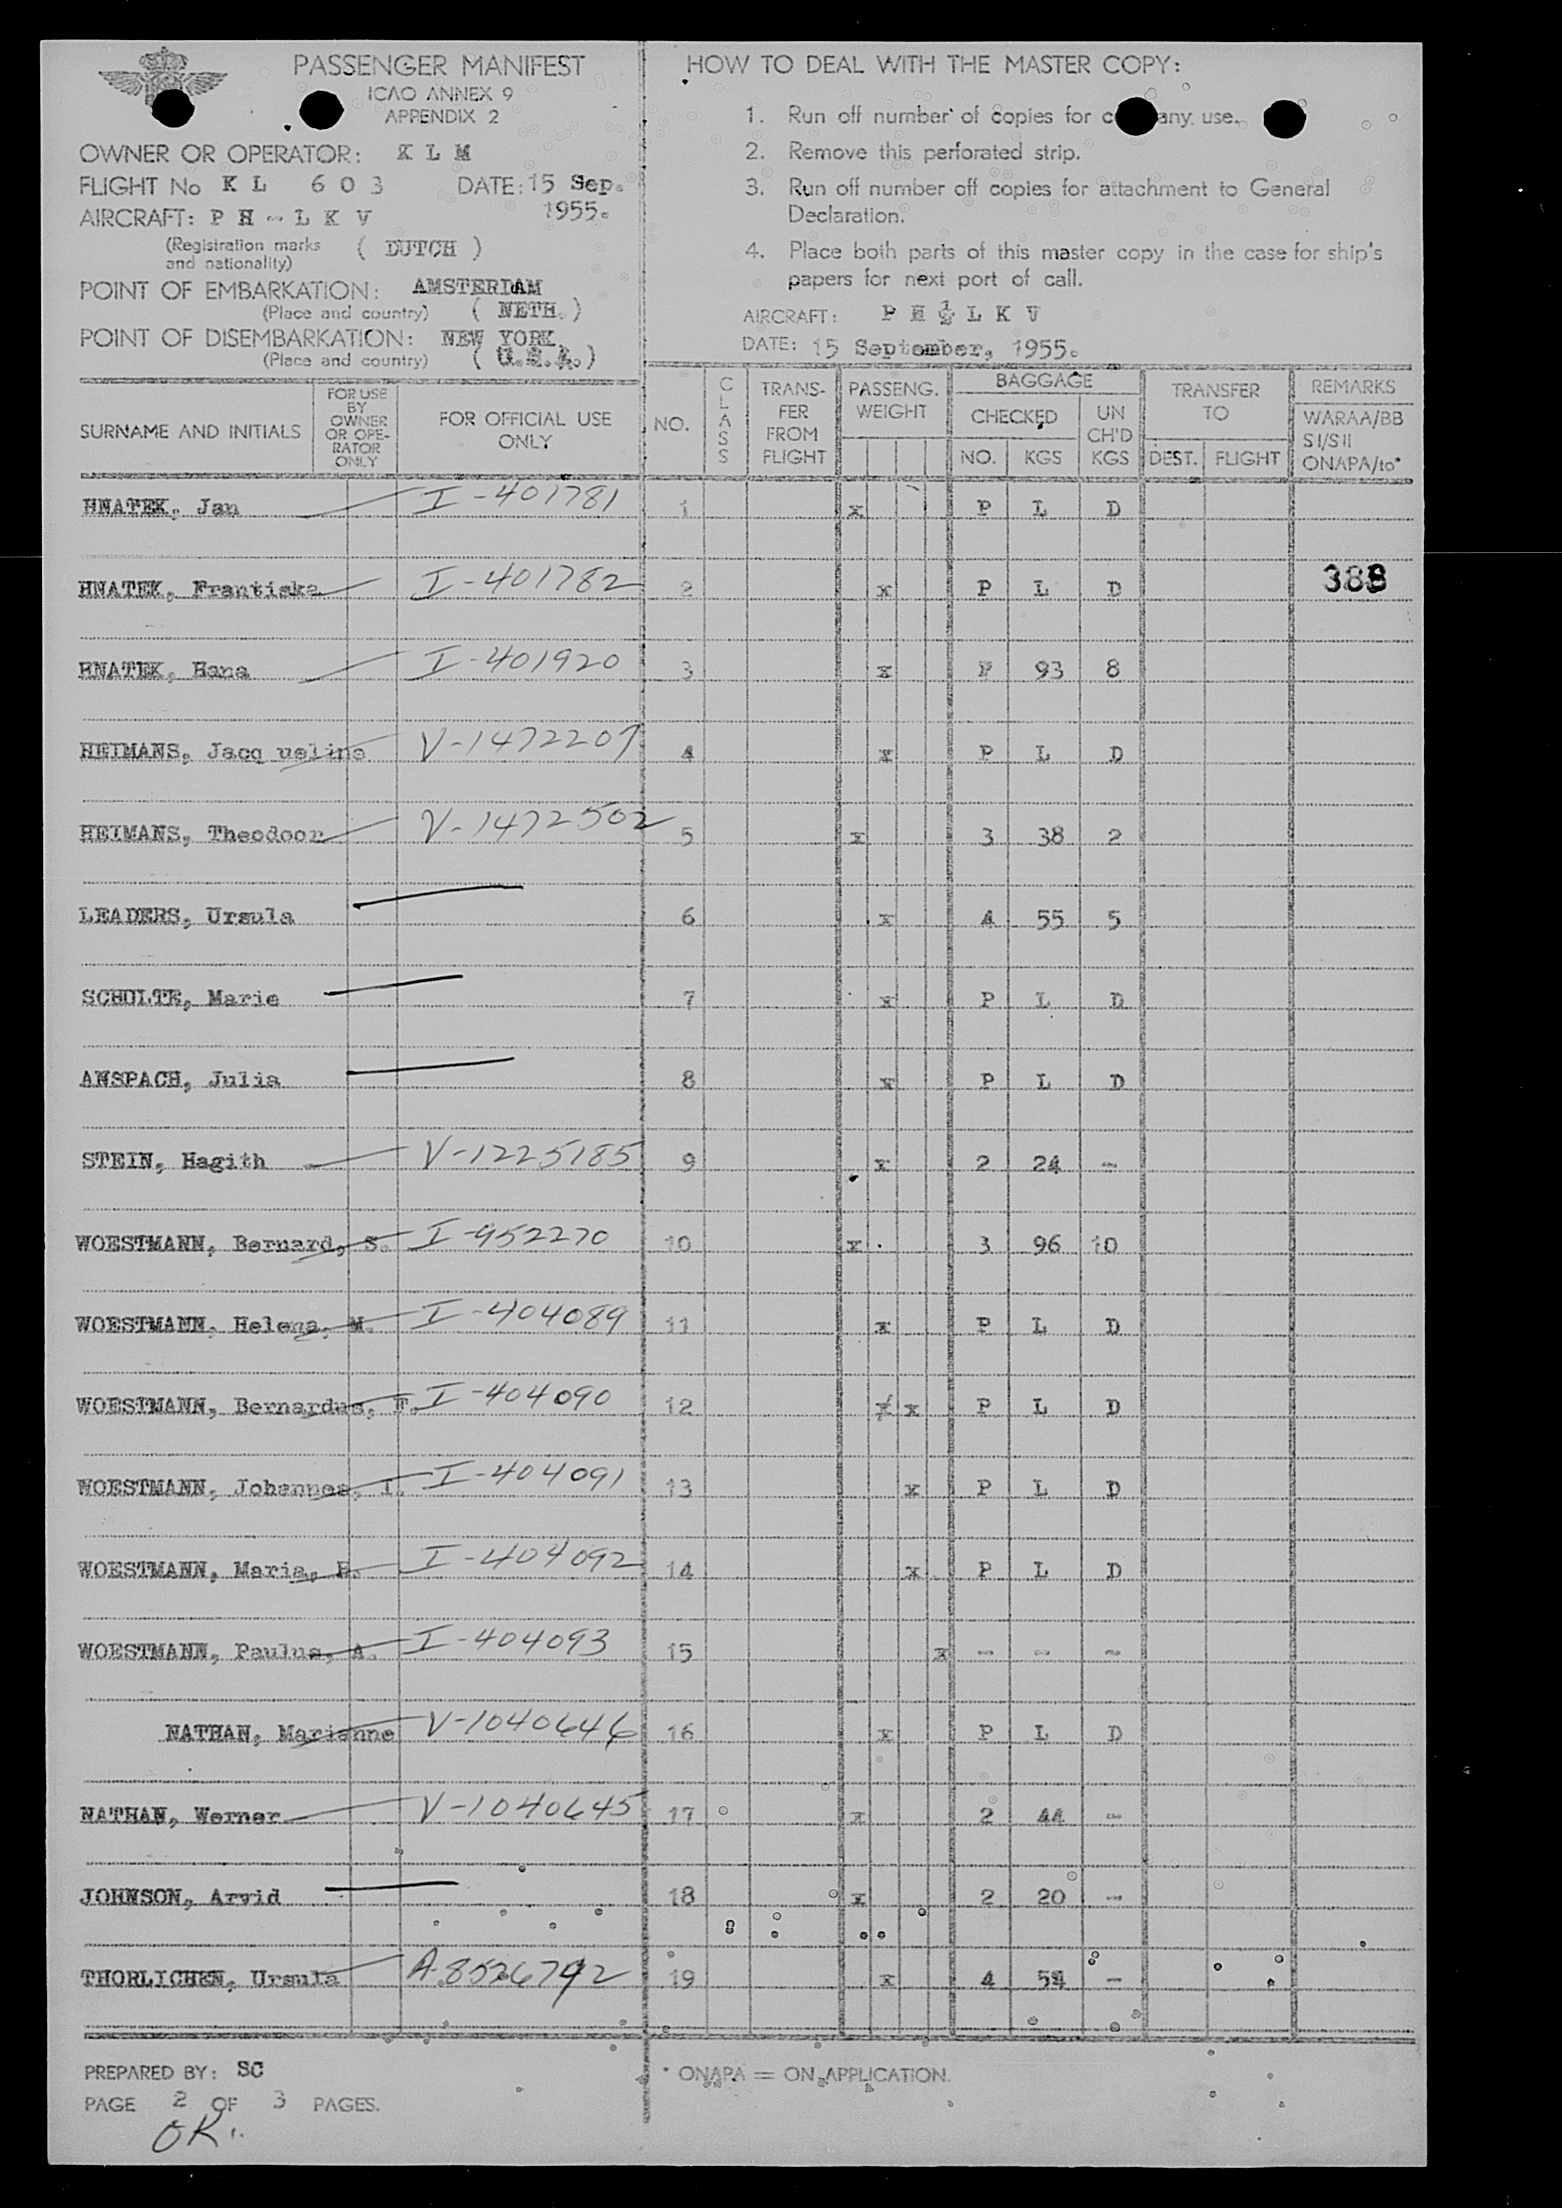 PASSENGER MANIFEST
ICAO ANNEX 9
APPENDIX 2
OWNER OR OPERATOR: K L M
FLIGHT No K L 6 0 3 DATE: 15 Sep. 1955.
AIRCRAFT: P H - L K V
(Registration marks and nationality) ( DUTCH )
POINT OF EMBARKATION: AMSTERDAM
(Place and country) ( NETH. )
POINT OF DISEMBARKATION: NEW YORK
(Place and country) ( U.S.A. )
HOW TO DEAL WITH THE MASTER COPY:
1. Run off number of copies for c any use.
2. Remove this perforated strip.
3. Run off number off copies for attachment to General
Declaration.
4. Place both parts of this master copy in the case for ship's
papers for next port of call.
AIRCRAFT: P H L K V
DATE: 15 September, 1955.
SURNAME AND INITIALS
FOR USE BY OWNER OR OPE- RATOR ONLY
FOR OFFICIAL USE ONLY
NO.
CLASS
TRANS- FER FROM FLIGHT
PASSENG. WEIGHT
BAGGAGE
CHECKED
NO. KGS
UN CH'D KGS
TRANSFER TO
DEST. FLIGHT
REMARKS
WARAA/BB
SI/SII
ONAPA/to*
HNATEK, Jan I-401781 1 x P L D
HNATEK, Frantiska I-401782 2 x P L D 388
HNATEK, Hana I-401920 3 x P 93 8
HEIMANS, Jacq ueline V-1472207 4 x P L D
HEIMANS, Theodoor V-1472502 5 x 3 38 2
LEADERS, Ursula 6 x 4 55 5
SCHULTE, Marie 7 x P L D
ANSPACH, Julia 8 x P L D
STEIN, Hagith V-1225185 9 x 2 24 -
WOESTMANN, Bernard, S. I-952270 10 x 3 96 10
WOESTMANN, Helena, M. I-404089 11 x P L D
WOESTMANN, Bernardus, F. I-404090 12 x x P L D
WOESTMANN, Johannes, I. I-404091 13 x P L D
WOESTMANN, Maria, B. I-404092 14 x P L D
WOESTMANN, Paulus, A. I-404093 15 x - - -
NATHAN, Marianne V-1040646 16 x P L D
NATHAN, Werner V-1040645 17 x 2 44 -
JOHNSON, Arvid 18 x 2 20 -
THORLICHEN, Ursula A-8526792 19 x 4 54 -
PREPARED BY: SC
PAGE 2 OF 3 PAGES.
OK.
* ONAPA = ON APPLICATION.